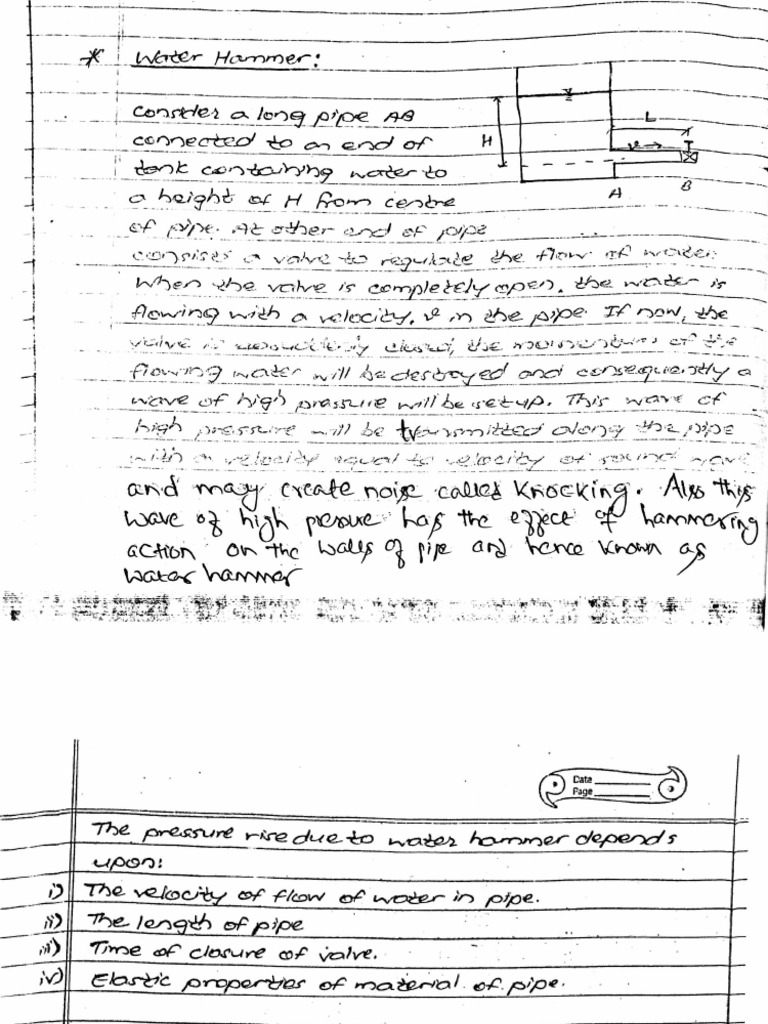 * Water Hammer:
Consider a long pipe AB
connected to an end of
tank containing water to
a height of H from centre
of pipe. At other end of pipe
consists a valve to regulate the flow of water.
When the valve is completely open, the water is
flowing with a velocity, v in the pipe. If now, the
valve is suddenly closed, the momentum of the
flowing water will be destroyed and consequently a
wave of high pressure will be setup. This wave of
high pressure will be transmitted along the pipe
with a velocity equal to velocity of sound wave
and may create noise called knocking. Also this
wave of high pressure has the effect of hammering
action on the walls of pipe and hence known as
water hammer
H
L
v →
A
B
Date
Page
The pressure rise due to water hammer depends
upon:
i) The velocity of flow of water in pipe.
ii) The length of pipe
iii) Time of closure of valve.
iv) Elastic properties of material of pipe.